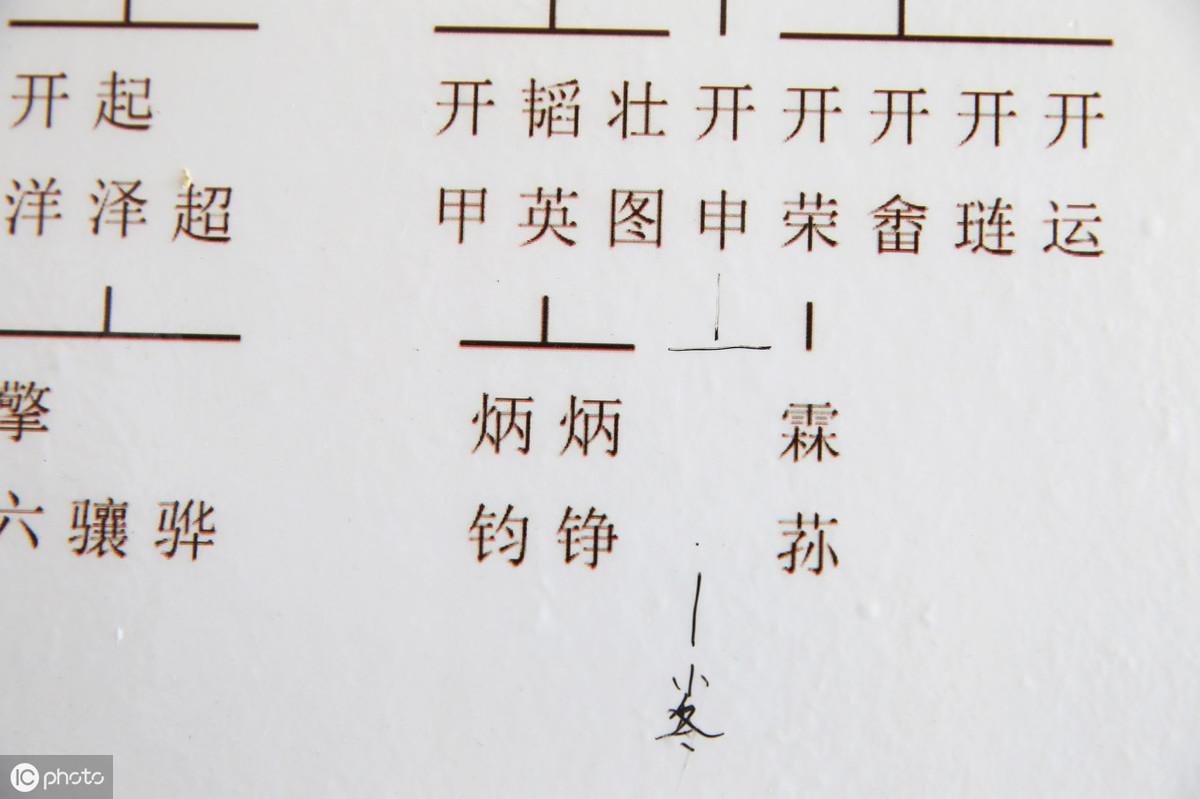 开 起
开 韬 壮 开 开 开 开 开
洋 泽 超
甲 英 图 申 荣 畬 琏 运
擎
炳 炳 霖
六 骧 骅
钧 铮 荪
IC photo